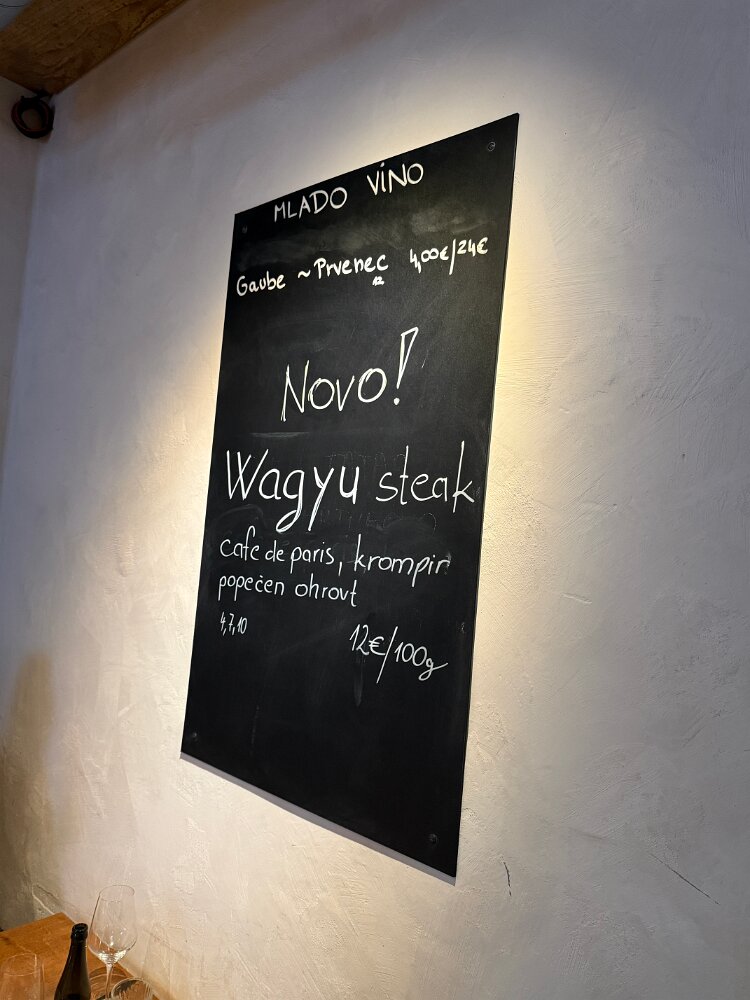 MLADO VINO
Gaube ~ Prvenec 4,00€/24€
12
Novo!
Wagyu steak
cafe de paris, krompir
popečen ohrovt
4,7,10
12€/100g